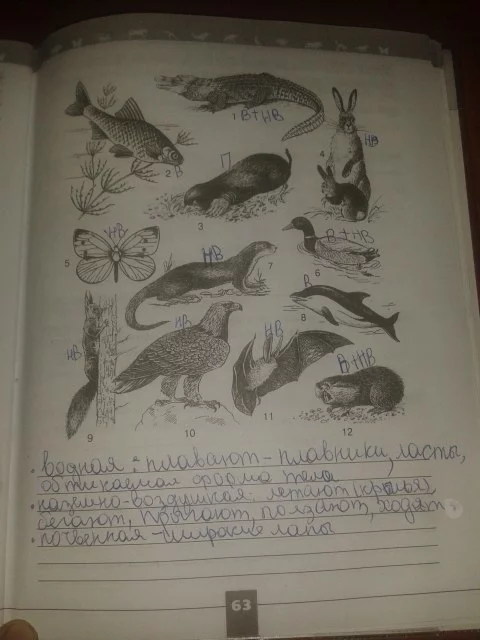 1 В+НВ
2 В
3 П
4 НВ
5 НВ
6 В+НВ
7 НВ
8 В
9 НВ
10 НВ
11 НВ
12 В+НВ
• водная: плавают – плавники, ласты,
обтикаемая форма тела
• наземно-воздушная: летают (крылья),
бегают, прыгают, ползают, ходят
• почвенная – широкие лапы
63